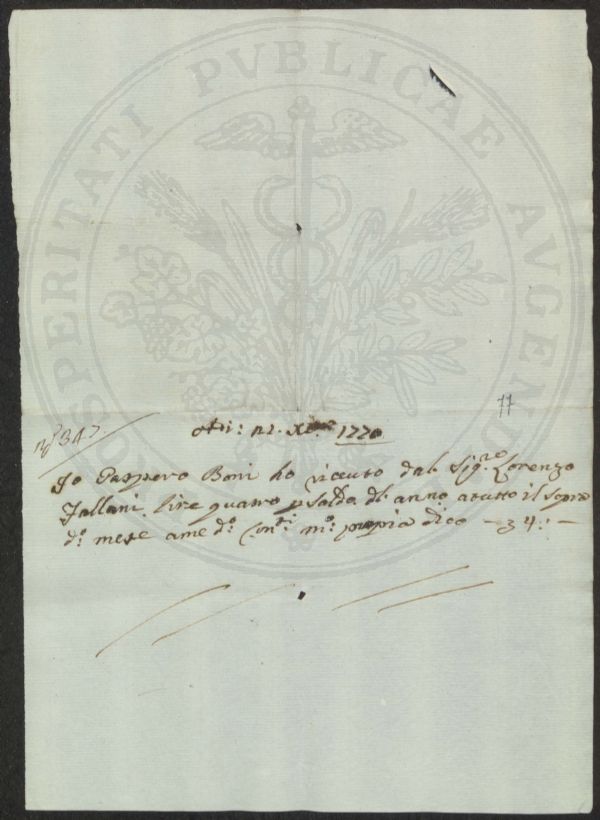 PROSPERITATI PVBLICAE AVGENDAE
77
No 347
Adi: 12. Xbre 1770
Io Gaspero Boni ho riceuto dal Sigre Lorenzo
Fallani lire quatro p saldo dl anno atutto il sopra
do: mese ame do: Conti mo: propia dico — 34: —